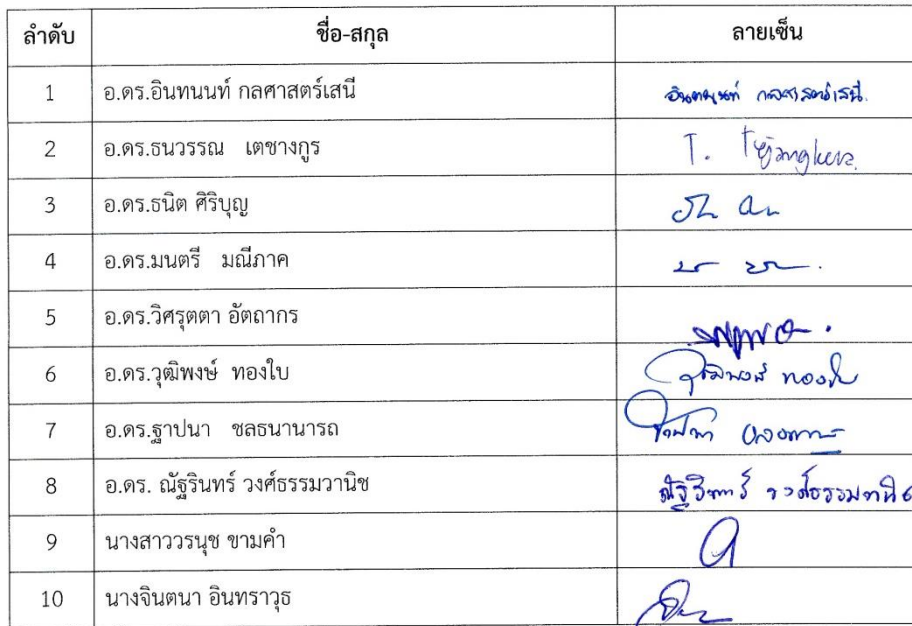 ลำดับ ชื่อ-สกุล ลายเซ็น
1 อ.ดร.อินทนนท์ กลศาสตร์เสนี อินทนนท์ กลศาสตร์เสนี
2 อ.ดร.ธนวรรณ เตชางกูร T. Tejangkura
3 อ.ดร.ธนิต ศิริบุญ
4 อ.ดร.มนตรี มณีภาค
5 อ.ดร.วิศรุตตา อัตถากร
6 อ.ดร.วุฒิพงษ์ ทองใบ วุฒิพงษ์ ทองใบ
7 อ.ดร.ฐาปนา ชลธนานารถ ฐาปนา
8 อ.ดร. ณัฐรินทร์ วงศ์ธรรมวานิช ณัฐรินทร์ วงศ์ธรรมวานิช
9 นางสาววรนุช ขามคำ
10 นางจินตนา อินทราวุธ